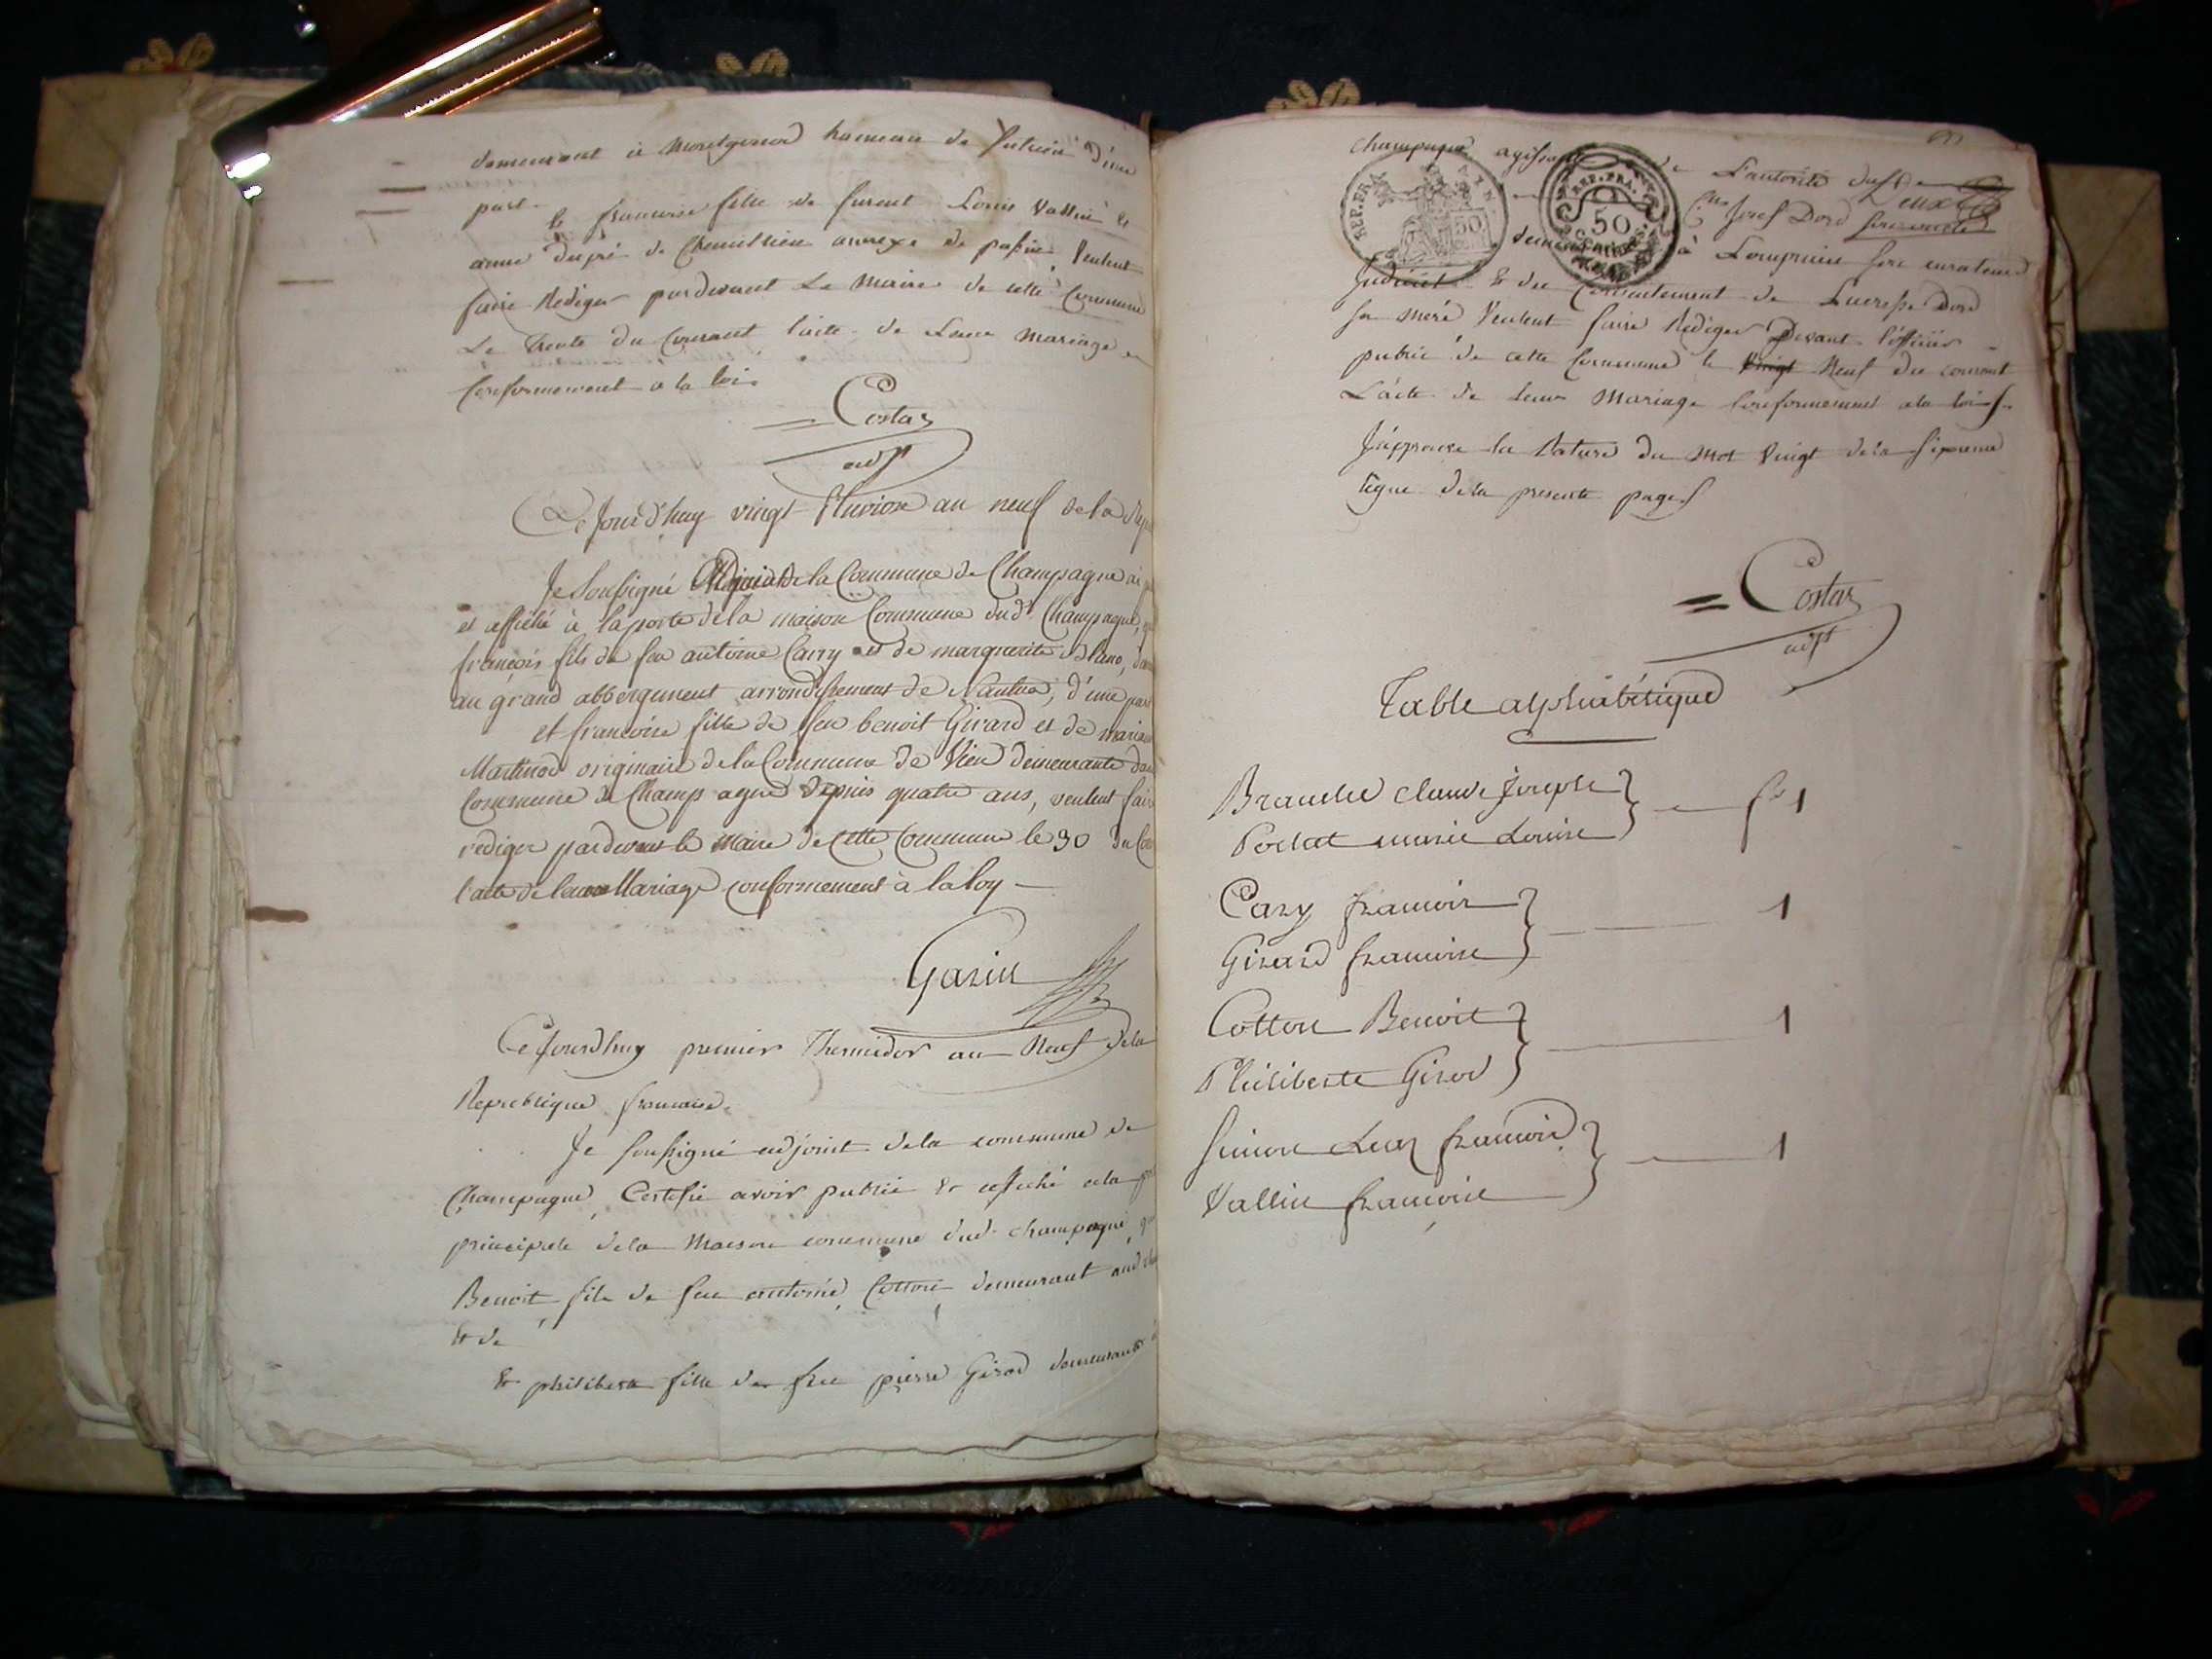 demeurant à Montgonod hameau de d'une
part.
Et francoise fille de furent Louis Vallin &
anne dupré de Chemillieu annexe de Veulent
faire Rediger pardevant Le Maire de cette Commune
Le Trente du Courant l'acte de Leur Mariage
Conformement a la loi.
Costaz
adjt
Ce Jour d'huy vingt Pluviose an neuf de la Rep
Je Soussigné Adjoint de la Commune de Champagne ai
et affiché à la porte de la maison Commune dud. Champagne,
françois fils de feu antoine Carry et de marguerite
au grand abbergement arrondissement de Nantua, d'une part
et francoise fille de feu benoit Girard et de
Martinod originaire de la Commune de Vieu demeurante
Commune de Champagne depuis quatre ans, veulent fair
rediger pardevant le maire de Cette Commune le 30 du
l'acte de leur Mariage conformement à la loy
Garin
Ce Jourdhuy premier Thermidor an Neuf de la
Republique francaise.
Je soussigné adjoint de la commune de
Champagne, Certifie avoir publié & affiché a la
principale de la Maison commune dud. champagne,
Benoit fils de feu antoine Cotton demeurant
& de
& philiberte fille de feu pierre Girod demeurante
Champagne agissant L'autorité
REP. FRA. AIN 50 REP. FRA. 50 CENTIMES Deux
Josef Dord
à Lompnieu son curateur
& du Consentement de Dord
sa mere Veulent faire Rediger Devant l'officier
public de cette Commune le vingt Neuf du courant
L'acte de leur Mariage Conformement a la loi
J'approuve la Rature du Mot Vingt de la sixieme
ligne de la presente page
Costaz
adjt
Table alphabétique
claude joseph
Pochat marie Louise fo 1
Cary francois
Girard francoise 1
Cotton Benoit
Philiberte Girod 1
Simon francois
Vallin francoise 1